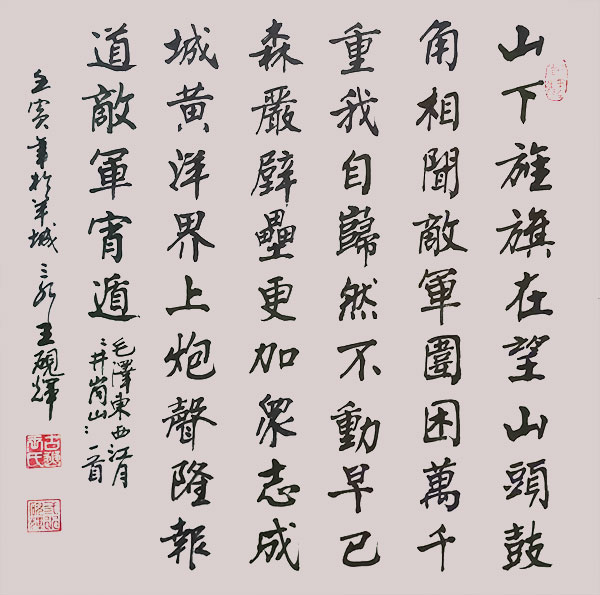 山下旌旗在望山頭鼓
角相聞敵軍圍困萬千
重我自巋然不動早已
森嚴壁壘更加衆志成
城黃洋界上炮聲隆報
道敵軍宵遁
毛澤東西江月
井崗山一首
壬寅年於羊城三水王硯輝